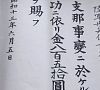 支那事變ニ於ケル
功ニ依リ金八百五拾圓
ヲ賜フ
昭和十五年六月五日